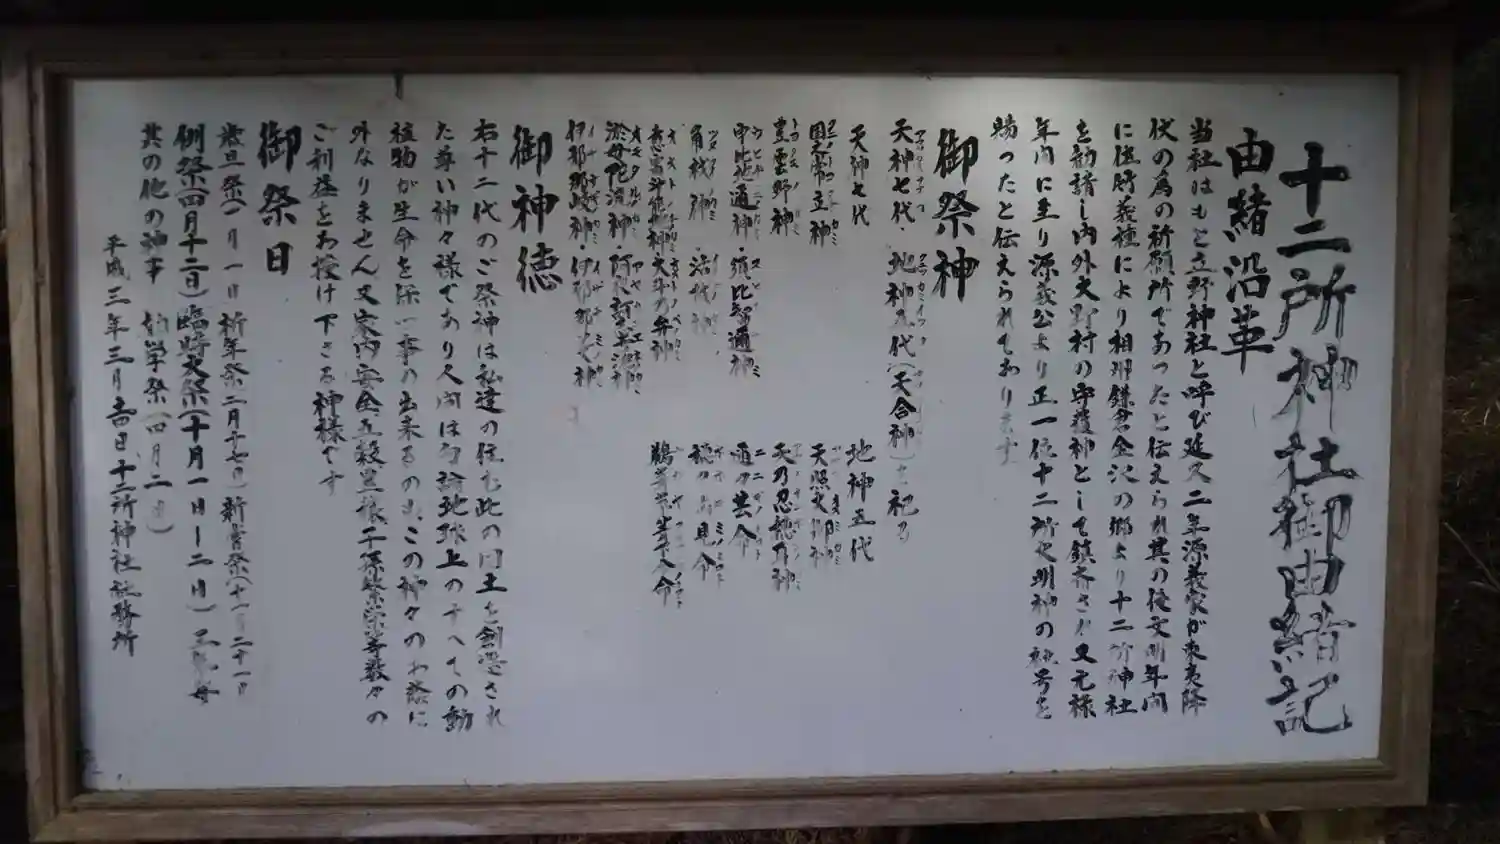 十二所神社御由緒記
由緒沿革
当社はもと立野神社と呼び延久二年源義家が東夷降
伏の為の祈願所であったと伝えられ其の後文明年間
に佐竹義種により相州鎌倉金沢の郷より十二所神社
を勧請し内外大野村の守護神として鎮斉され又元禄
年間に至り源義公より正一位十二所大明神の社号を
賜ったと伝えられております
御祭神
天神七代・地神五代(天合神)を祀る
天神七代
国之常立神
豊雲野神
宇比地邇神・須比智邇神
角杙神・活杙神
意富斗能地神・大斗乃弁神
淤母陀流神・阿夜訶志泥神
伊邪那岐神・伊邪那美神
地神五代
天照大御神
天乃忍穂乃神
邇々芸命
穂々出見命
御神徳
右十二代のご祭神は私達の住む此の国土を創造され
た尊い神々様であり人間は勿論地球上のすべての動
植物が生命を保つ事の出来るのは、この神々のお蔭に
外なりません又家内安全五穀豊穣子孫繁栄等数々の
ご利益をお授け下さる神様です
御祭日
歳旦祭(一月一日祈年祭二月十七日)新嘗祭(十一月二十一日
例祭(四月十二日)臨時大祭(十月一日―二日)
其の他の神事 祭(四月二日)
平成三年三月吉日十二所神社社務所